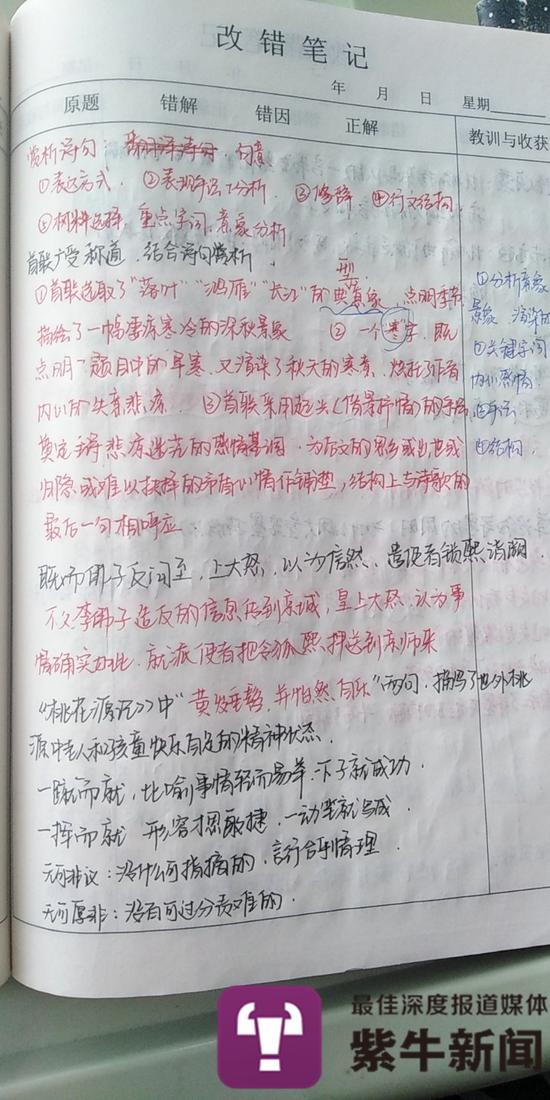 改错笔记
年 月 日 星期
原题 错解 错因 正解 教训与收获
赏析诗句 句意
①表达方式 ②表现手法分析 ③修辞 ④行文结构
⑤材料选择 重点字词 意象分析
首联广受称道,结合诗句赏析.
典型
①首联选取了"落叶""鸿雁""长江"的 意象,点明季节
描绘了一幅萧疏寒冷的深秋景象 ②一个寒字,既
点明了题目中的早寒,又渲染了秋天的寒意,烘托了作者
内心的失意悲凉. ③首联采用起兴(借景抒情)的手法
奠定 悲凉迷茫的感情基调,为后文的思乡或出仕或
归隐或难以抉择的矛盾心情作铺垫,结构上与诗歌的
最后一句相呼应
①分析意象
景象,渲染的
②关键字词
内心感情
③手法
④结构
既而佛子反问至,上大怒,以为信然,遣使者锁熙诣阙.
不久李佛子造反的信息传到京城,皇上大怒,认为事
情确实如此,就派使者把令狐熙押送到京师来
《桃花源记》中"黄发垂髫,并怡然自乐"两句,描写了世外桃
源中老人和孩童快乐自足的精神状态.
一蹴而就,比喻事情轻而易举,一下子就成功.
一挥而就 形容才思敏捷,一动笔就写成.
无可非议:没什么可指摘的,言行合乎情理.
无可厚非:没有可过分责难的.
最佳深度报道媒体
紫牛新闻